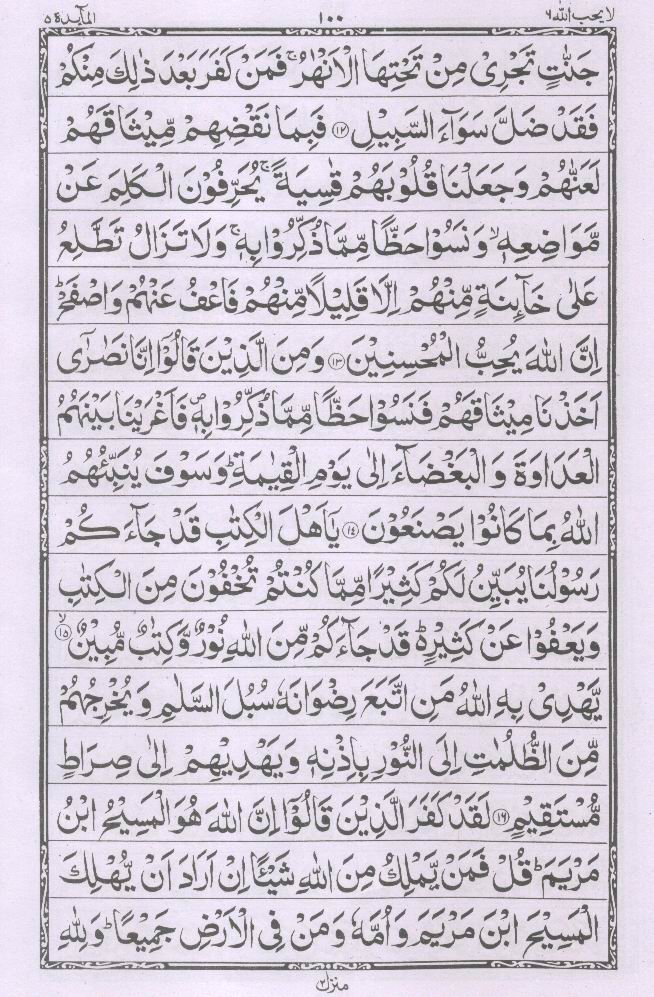 لا یحب الله ۶ ۱۰۰ المآىدة ۵
جَنّٰتٍ تَجْرِیْ مِنْ تَحْتِهَا الْاَنْهٰرُ ۚ فَمَنْ كَفَرَ بَعْدَ ذٰلِكَ مِنْكُمْ
فَقَدْ ضَلَّ سَوَآءَ السَّبِیْلِ ﴿۱۲﴾ فَبِمَا نَقْضِهِمْ مِّیْثَاقَهُمْ
لَعَنّٰهُمْ وَجَعَلْنَا قُلُوْبَهُمْ قٰسِیَةً ۚ یُحَرِّفُوْنَ الْكَلِمَ عَنْ
مَّوَاضِعِهٖ ۙ وَنَسُوْا حَظًّا مِّمَّا ذُكِّرُوْا بِهٖ ۚ وَلَا تَزَالُ تَطَّلِعُ
عَلٰی خَآىِٕنَةٍ مِّنْهُمْ اِلَّا قَلِیْلًا مِّنْهُمْ فَاعْفُ عَنْهُمْ وَاصْفَحْ ؕ
اِنَّ اللّٰهَ یُحِبُّ الْمُحْسِنِیْنَ ﴿۱۳﴾ وَمِنَ الَّذِیْنَ قَالُوْۤا اِنَّا نَصٰرٰۤی
اَخَذْنَا مِیْثَاقَهُمْ فَنَسُوْا حَظًّا مِّمَّا ذُكِّرُوْا بِهٖ ۪ فَاَغْرَیْنَا بَیْنَهُمُ
الْعَدَاوَةَ وَالْبَغْضَآءَ اِلٰی یَوْمِ الْقِیٰمَةِ ؕ وَسَوْفَ یُنَبِّئُهُمُ
اللّٰهُ بِمَا كَانُوْا یَصْنَعُوْنَ ﴿۱۴﴾ یٰۤاَهْلَ الْكِتٰبِ قَدْ جَآءَكُمْ
رَسُوْلُنَا یُبَیِّنُ لَكُمْ كَثِیْرًا مِّمَّا كُنْتُمْ تُخْفُوْنَ مِنَ الْكِتٰبِ
وَیَعْفُوْا عَنْ كَثِیْرٍ ؕ۬ قَدْ جَآءَكُمْ مِّنَ اللّٰهِ نُوْرٌ وَّكِتٰبٌ مُّبِیْنٌ ﴿ۙ۱۵﴾
یَّهْدِیْ بِهِ اللّٰهُ مَنِ اتَّبَعَ رِضْوَانَهٗ سُبُلَ السَّلٰمِ وَیُخْرِجُهُمْ
مِّنَ الظُّلُمٰتِ اِلَی النُّوْرِ بِاِذْنِهٖ وَیَهْدِیْهِمْ اِلٰی صِرَاطٍ
مُّسْتَقِیْمٍ ﴿۱۶﴾ لَقَدْ كَفَرَ الَّذِیْنَ قَالُوْۤا اِنَّ اللّٰهَ هُوَ الْمَسِیْحُ ابْنُ
مَرْیَمَ ؕ قُلْ فَمَنْ یَّمْلِكُ مِنَ اللّٰهِ شَیْـًٔا اِنْ اَرَادَ اَنْ یُّهْلِكَ
الْمَسِیْحَ ابْنَ مَرْیَمَ وَاُمَّهٗ وَمَنْ فِی الْاَرْضِ جَمِیْعًا ؕ وَلِلّٰهِ
منزل ۲